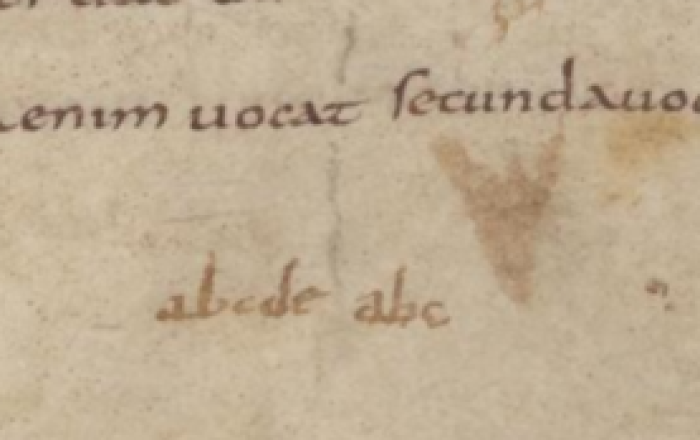 enim uocat secundauoc
abcde abc